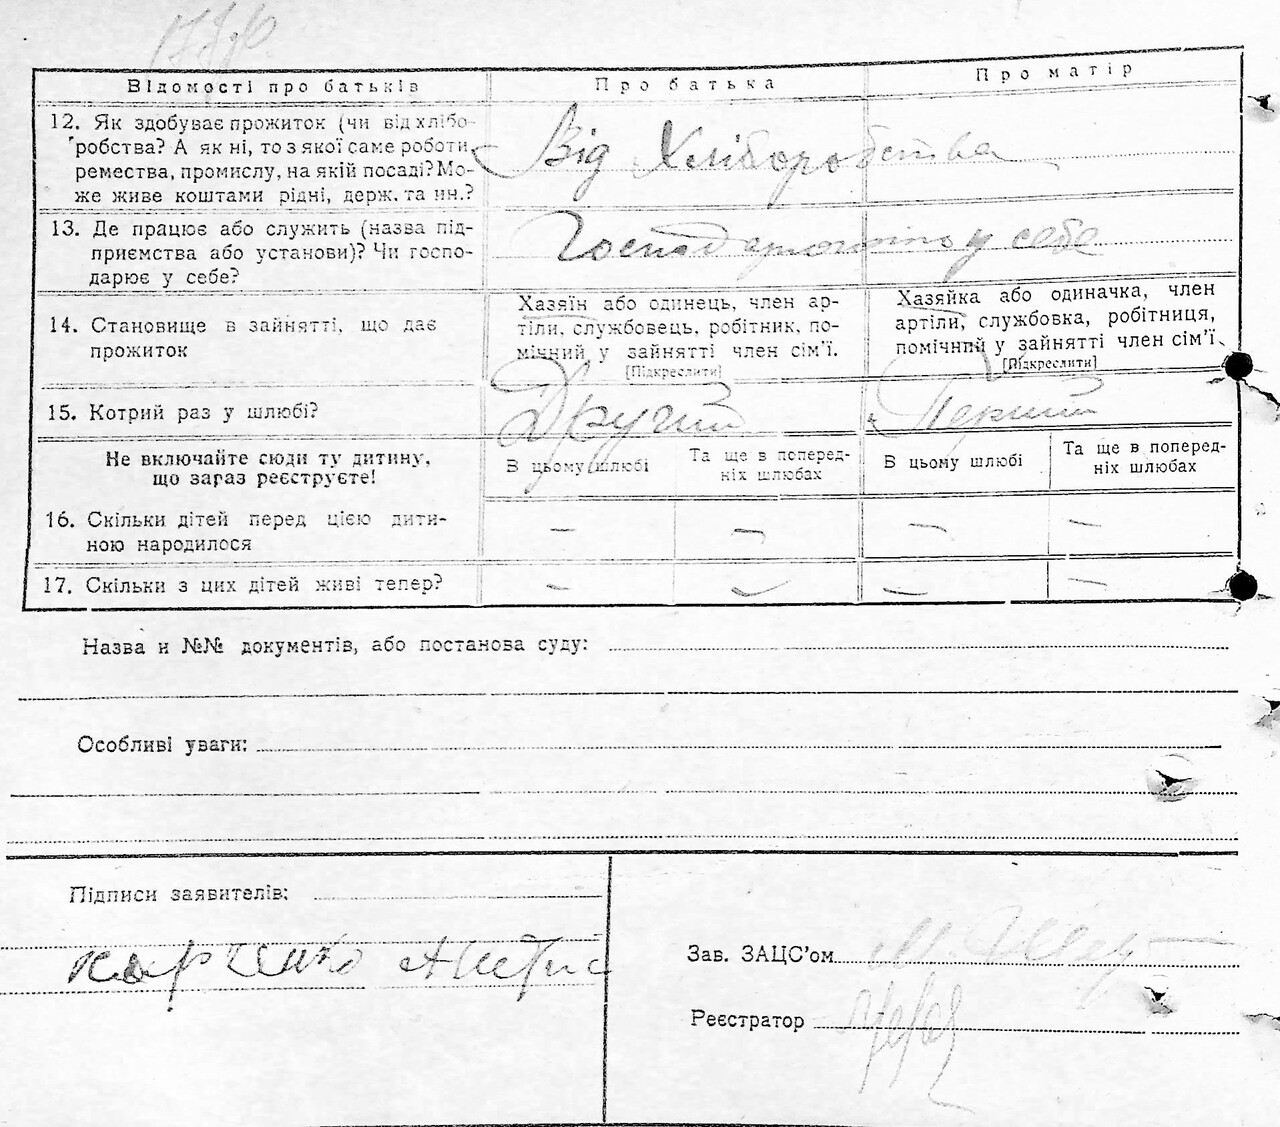 Відомості про батьків Про батька Про матір
12. Як здобуває прожиток (чи від хлібо-
робства? А як ні, то з якої саме роботи,
ремества, промислу, на якій посаді? Мо-
же живе коштами рідні, держ. та ин.?
Від Хліборобства
13. Де працює або служить (назва під-
приємства або установи)? Чи госпо-
дарює у себе?
Господарюють у себе
14. Становище в зайнятті, що дає
прожиток
Хазяїн або одинець, член ар-
тіли, службовець, робітник, по-
мічний у зайнятті член сім'ї.
[Підкреслити]
Хазяйка або одиначка, член
артіли, службовка, робітниця,
помічний у зайнятті член сім'ї.
[Підкреслити]
15. Котрий раз у шлюбі? Другий Первий
Не включайте сюди ту дитину,
що зараз реєструєте!
В цьому шлюбі
Та ще в поперед-
ніх шлюбах
В цьому шлюбі
Та ще в поперед-
ніх шлюбах
16. Скільки дітей перед цією дити-
ною народилося
— — — —
17. Скільки з цих дітей живі тепер? — — — —
Назва и №№ документів, або постанова суду:
Особливі уваги:
Підписи заявителів:
Зав. ЗАЦС'ом
Реєстратор